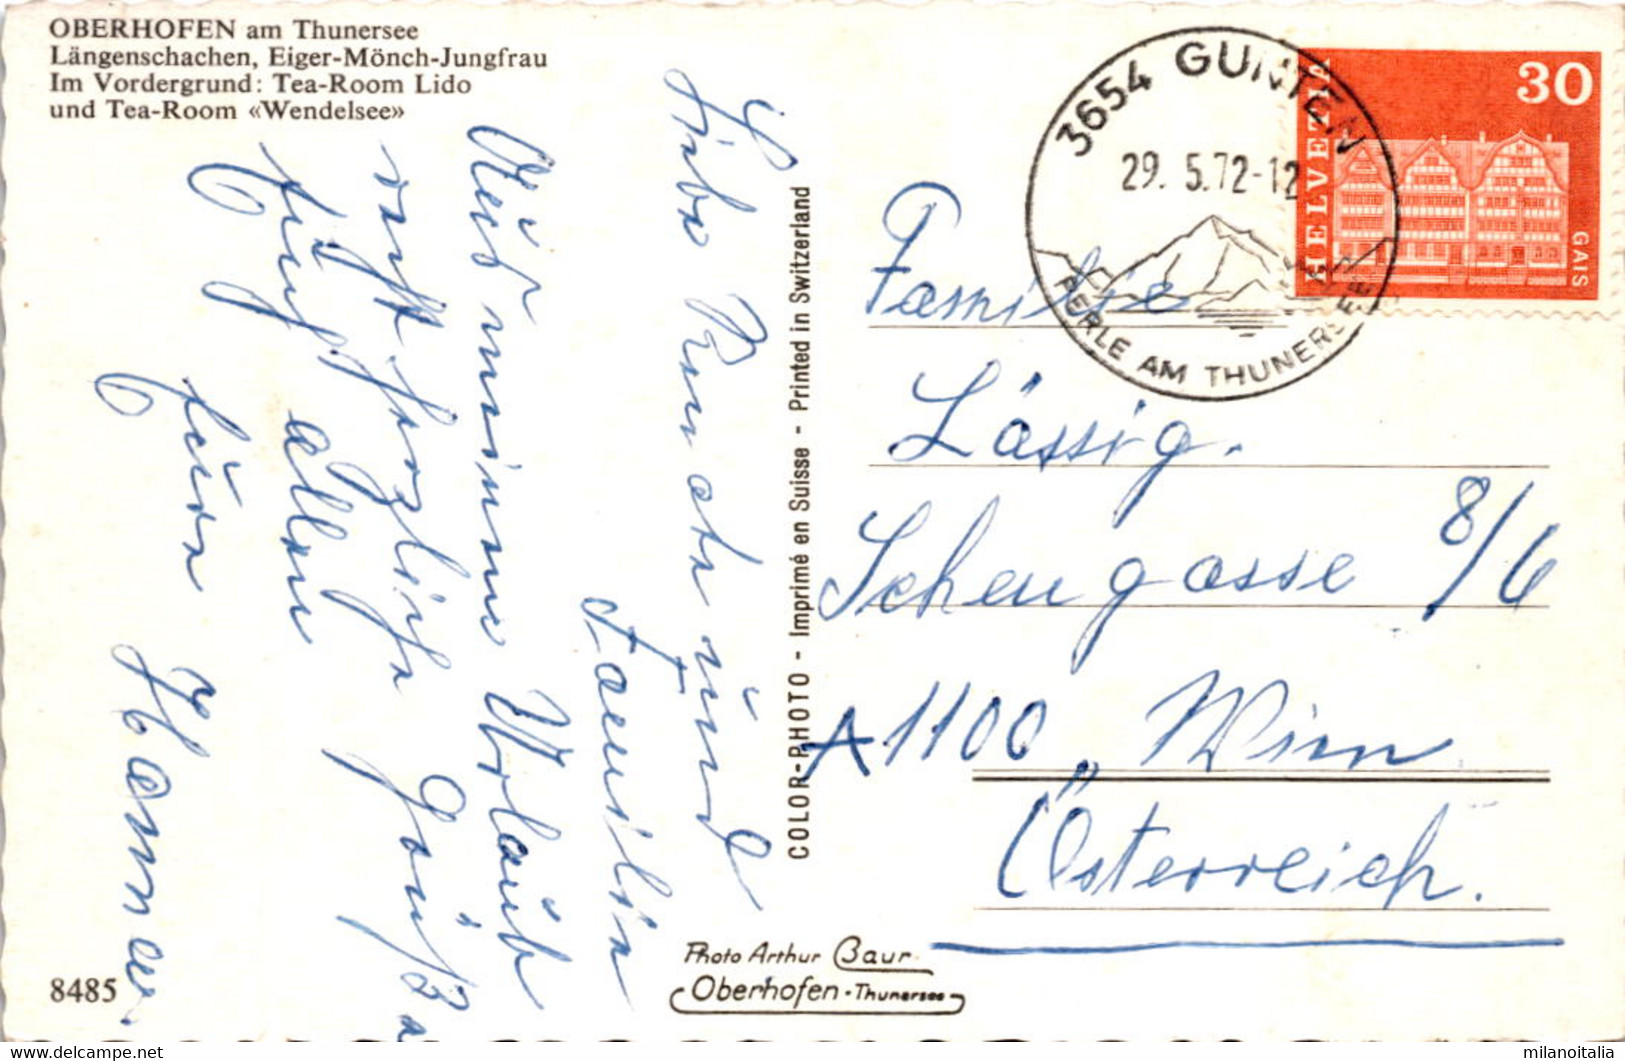 OBERHOFEN am Thunersee
Längenschachen, Eiger-Mönch-Jungfrau
Im Vordergrund: Tea-Room Lido
und Tea-Room «Wendelsee»
3654 GUNTEN
29. 5.72-12
PERLE AM THUNERSEE
HELVETIA
30
GAIS
Liebe Renate und
Familie
Aus meinem Urlaub
recht herzliche Grüße
Euch allen
Eure
Hanna
COLOR-PHOTO - Imprimé en Suisse - Printed in Switzerland
Familie
Lässig.
Scheugasse 8/6
A 1100 „ Wien
Österreich.
Photo Arthur Baur
Oberhofen-Thunersee
8485
milanoitalia
www.delcampe.net